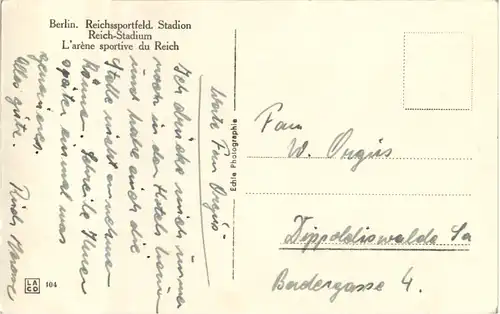 Berlin. Reichssportfeld. Stadion
Reich-Stadium
L'arène sportive du Reich
Werte Frau Orgus.
Ich drücke mich immer
noch in den Hotels herum
und habe auch die
Stelle nicht annehmen
können. Schreibe Ihnen
später einmal was
genaueres.
Alles gute.
Echte Photographie
Frau
W. Orgus
Dippoldiswalde Sa
Badergasse 4.
LACO 104